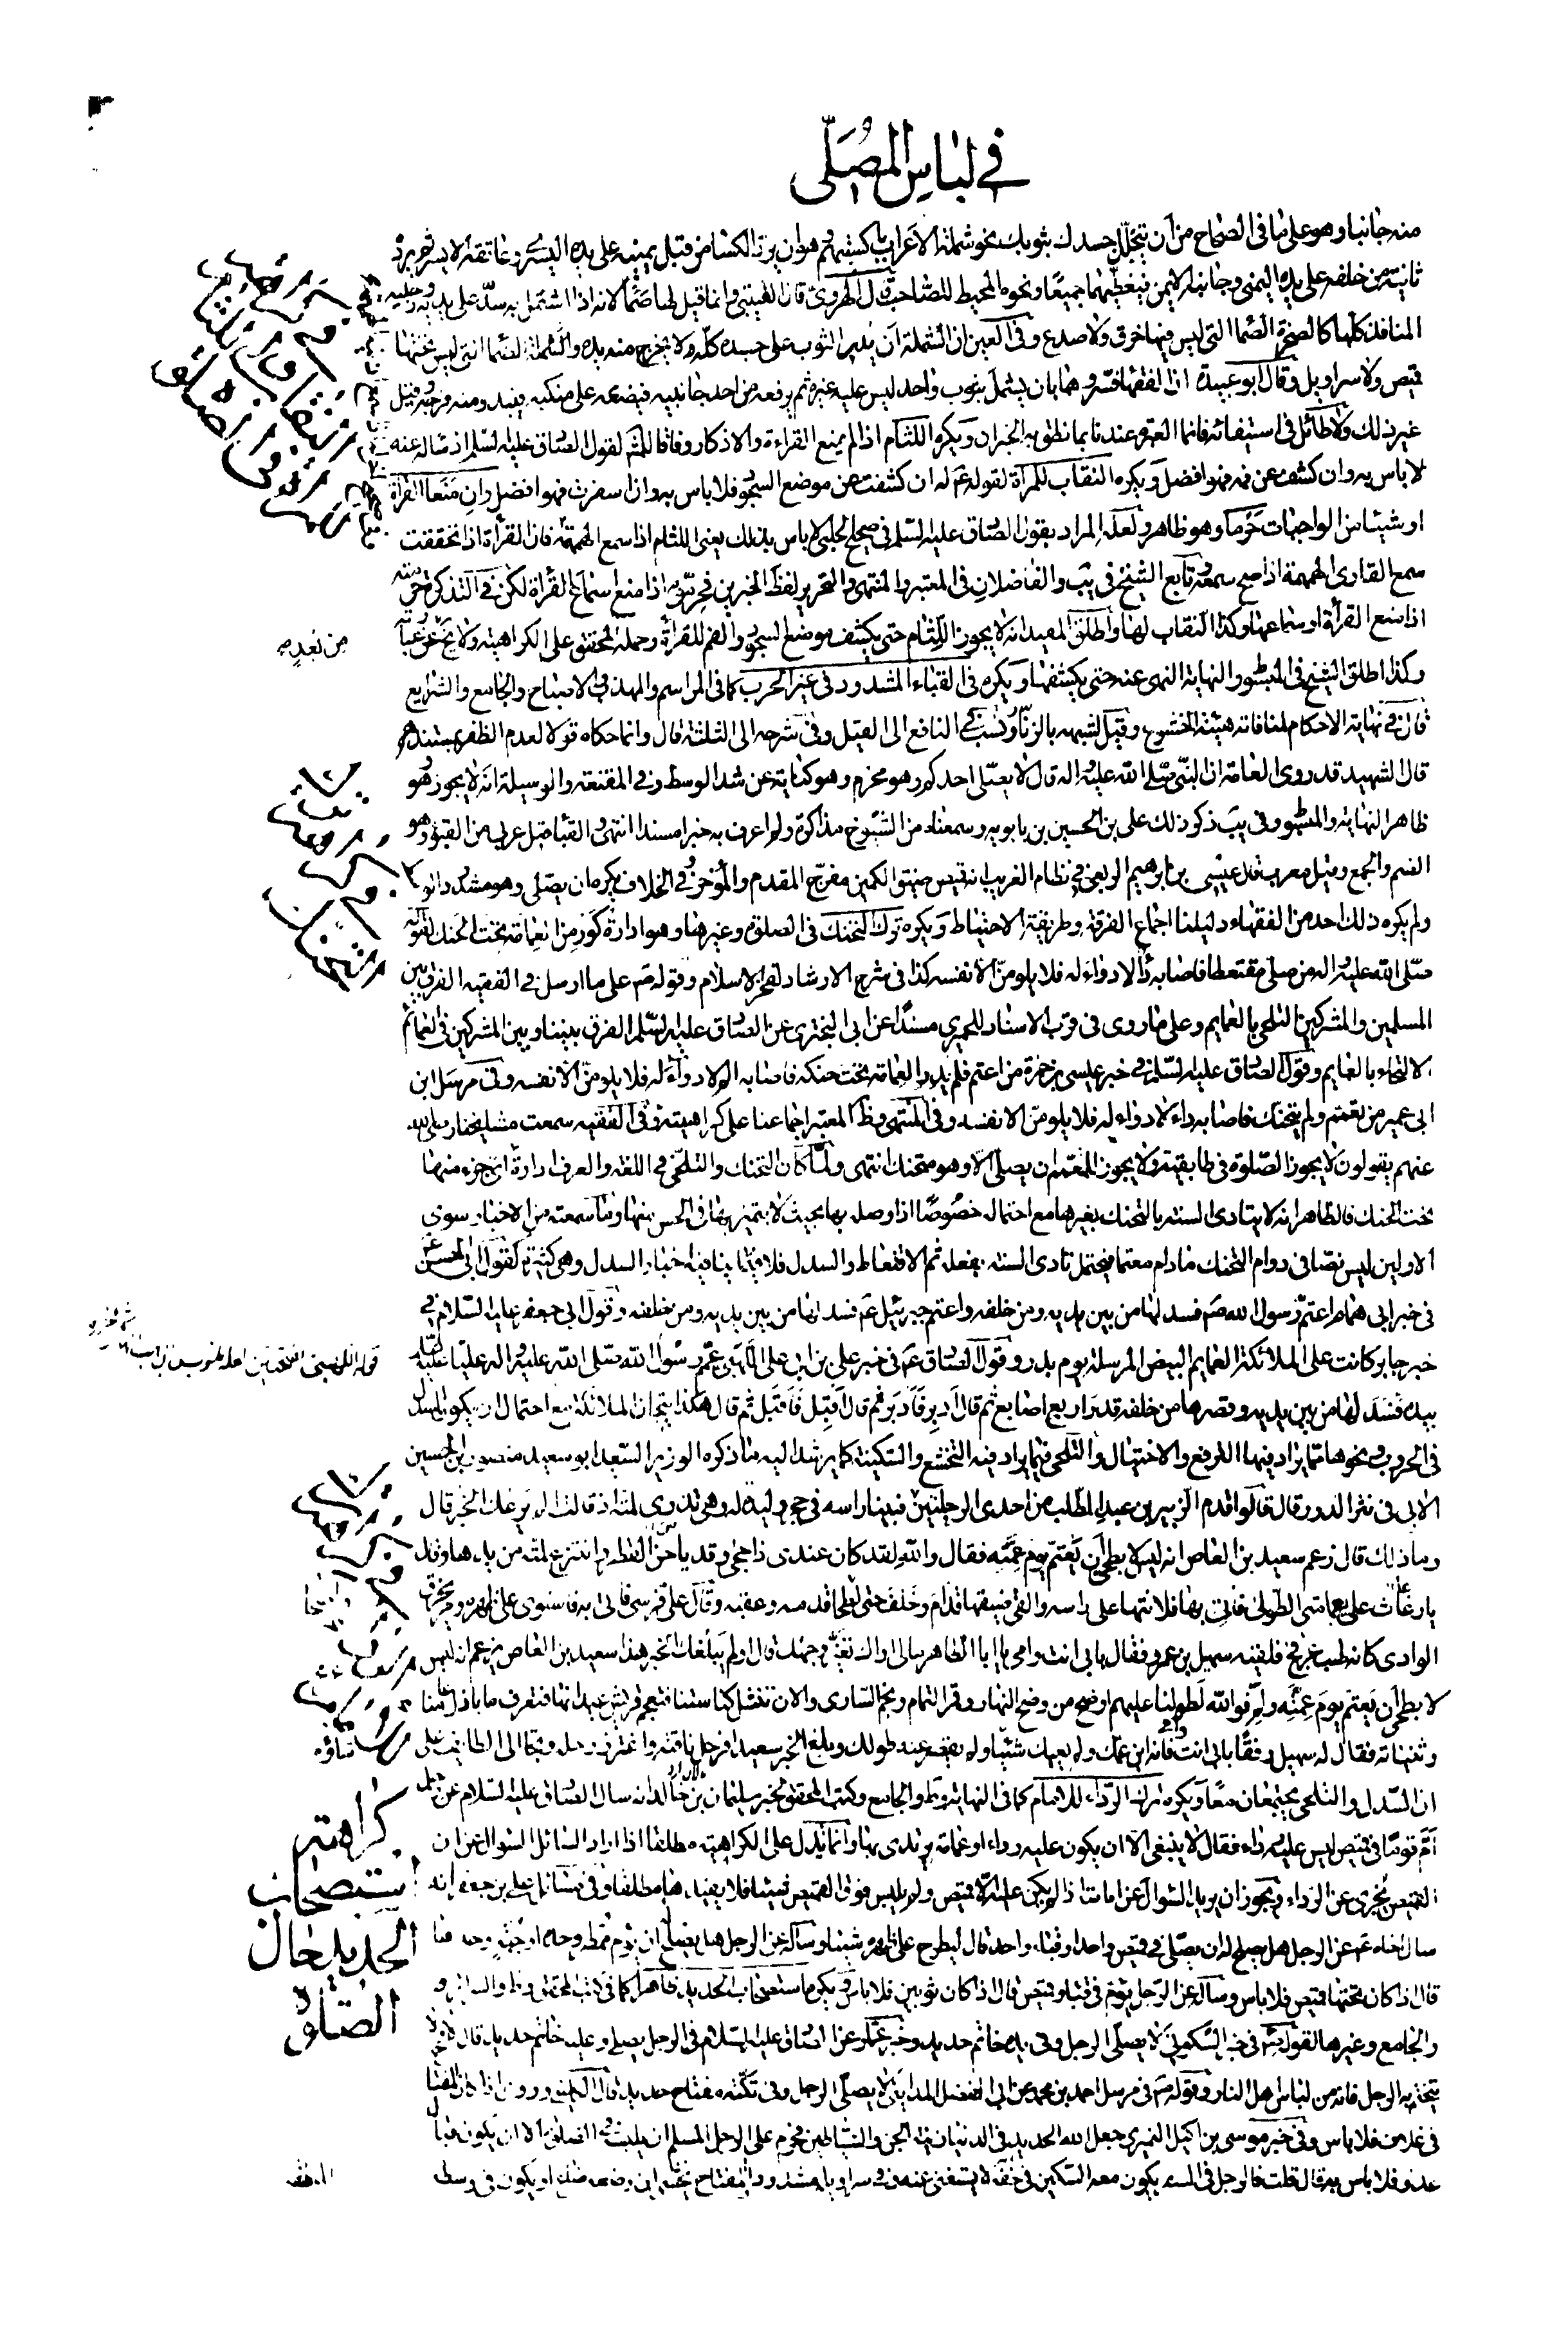 في لباس المصلى
منه جانبا وهو على ما فى الصحاح من أن تجلل جسدك بثوبك نحو شملة الأعراب باكسيتهم وهو ان يرد الكساء من قبل يمينه على يده اليسرى وعاتقه الايسر ثم يرد
ثانية من خلفه على يده اليمنى وجانبه الايمن فيغطيهما جميعا ونحوه المحيط للصاحب وقال الهروى قال القتيبى وانما قيل لها صما لانه اذا اشتمل به سد على يديه ورجليه
المنافذ كلها كالصخرة الصما التى ليس فيها خرق ولا صدع وفى العين ان الشملة أن يدير الثوب على جسده كله ولا يخرج منه يده والشملة الصما التى ليس تحتها
قميص ولا سراويل وقال ابو عبيدة ان الفقها فسروها بان يشتمل بثوب واحد ليس عليه غيره ثم يرفعه من احد جانبيه فيضعه على منكبه فيبدو منه فرجه وقيل
غير ذلك ولا طائل فى استيفائه فانما العبرة عندنا بما نطق به الخبران ويكره اللثام اذا لم يمنع القراءة والاذكار وفاقا للمشهور لقول الصادق عليه السلم اذ سأله عنه
لا باس به وان كشف عن فمه فهو افضل ويكره النقاب للمرأة لقوله ع له ان كشفت عن موضع السجود فلا باس به وان اسفرت فهو افضل وان منعا القرأة
او شيئا من الواجبات حرما وهو ظاهر ولعله المراد بقول الصادق عليه السلم فى صحيح الحلبى لا باس بذلك يعنى اللثام اذا سمع الهمهمة فان القرأة اذا تحققت
سمع القارى الهمهمة اذا صح سمعه وتابع الشيخ فى يب والفاضلان فى المعتبر والمنتهى والتحرير لفظ الخبر فحرموه اذا منع اسماع القرأة لكن فى التذكرة حرمته
اذا منع القرأة او سماعها وكذا النقاب لها واطلق المفيد انه لا يجوز اللثام حتى يكشف موضع السجود والفم للقرأة وحمله المحقق على الكراهية ولا يخ عن
من بعد
وكذا اطلق الشيخ فى المبسوط والنهاية النهى عنه حتى يكشفها ويكره فى القباء المشدود فى غير الحرب كما فى المراسم والمهذب والاصباح والجامع والشرايع
قال فى نهاية الاحكام لمنافاته هيئة الخشوع وقيل لشبهه بالزنار ونسب فى النافع الى القيل وفى شرحه الى الثلثة قال وانما حكاه قولا لعدم الظفر بمستندهم
قال الشهيد قد روى العامة ان النبى صلى الله عليه واله قال لا يصلى احدكم وهو محزم وهو كناية عن شد الوسط وفى المقنعة والوسيلة انه لا يجوز وهو
ظاهر النهاية والمبسوط وفى يب ذكر ذلك على بن الحسين بن بابويه وسمعناه من الشيوخ مذاكرة ولم اعرف به خبرا مسندا انتهى والقبا قيل عربى من القبو وهو
الضم والجمع وقيل معرب قال عيسى بن ابرهيم الربعى فى نظام الغريب انه قميص ضيق الكمين مفرج المقدم والمؤخر وفى الخلاف يكره ان يصلى وهو مشدود الوسط
ولم يكره ذلك احد من الفقهاء دليلنا اجماع الفرقة وطريقة الاحتياط ويكره ترك التحنك فى الصلوة وغيرها وهو ادارة كور من العمامة تحت الحنك لقوله
صلى الله عليه واله من صلى مقتعطا فاصابه داء لا دواء له فلا يلومن الا نفسه كذا فى شرح الارشاد لفخر الاسلام وقوله ص على ما ارسل فى الفقيه الفرق بين
المسلمين والمشركين التلحى بالعمايم وعلى ما روى فى قرب الاسناد للحميرى مسندا عن ابى البخترى عن الصادق عليه السلم الفرق بيننا وبين المشركين فى العمائم
الالتحاء بالعمايم وقول الصادق عليه السلم فى خبر عيسى بن حمزة من اعتم فلم يدر العمامة تحت حنكه فاصابه الم لا دواء له فلا يلومن الا نفسه وفى مرسل ابن
ابى عمير من تعمم ولم يتحنك فاصابه داء لا دواء له فلا يلومن الا نفسه وفى المنتهى وظ المعتبر اجماعنا على كراهيته وفى الفقيه سمعت مشايخنا رضى الله
عنهم يقولون لا يجوز الصلوة فى طابقية ولا يجوز للمعتم ان يصلى الا وهو متحنك انتهى ولما كان التحنك والتلحى فى اللغة والعرف ادارة اى جزء منها
تحت الحنك فالظاهر انه لا يتادى السنة بالتحنك بغيرها مع احتمال خصوصا اذا وصل بها بحيث لا يتميز بها فى الحس منها وما سمعته من الاخبار سوى
الاولين ليس نصا فى دوام التحنك ما دام معتما فيحتمل تادى السنة بفعله ثم الاقتعاط والسدل فلا ينافيه اخبار السدل وهى كثيرة كقول ابى الحسن
فى خبر ابى همام اعتم رسول الله ص فسدلها من بين يديه ومن خلفه واعتم جبرئيل ع فسدلها من بين يديه ومن خلفه وقول ابى جعفر عليه السلام فى
خبر جابر كانت على الملائكة العمايم البيض المرسلة يوم بدر وقول الصادق ع فى خبر على بن ابى على اللهبى عمم رسول الله صلى الله عليه واله عليا عليه السلم
بيده فسدلها من بين يديه وقصرها من خلفه قدر اربع اصابع ثم قال أدبر فأدبر ثم قال أقبل فأقبل ثم قال هكذا تيجان الملائكة مع احتمال ان يكون السدل
فى الحروب ونحوها مما يراد فيها الترفع والاختيال والتلحى فيما يراد فيه التخشع والسكينة كما يرشد اليه ما ذكره الوزير السعيد ابو سعيد منصور بن الحسين
الابى فى نثر الدرر قال قالوا قدم الزبير بن عبد المطلب من احدى الرحلتين فبينا راسه فى حجر وليدة له وهى تذرى لمته اذ قالت الم يرعك الخبر قال
وما ذلك قال زعم سعيد بن العاص انه ليس لابطحى أن يعتم يوم عمته فقال والله لقد كان عندى ذا حجى وقد
يا رغاث على بعمامتى الطولى فاتى بها فلاثها على راسه والقى ضيفها قدام وخلف حتى لطخا قدمه وعقبه وقال على فرسى فاتى به فاستوى على ظهره ومر يخرق
الوادى كانه لهب عرفج فلقيه سهيل بن عمرو فقال بابى انت وامى يا ابا الطاهر مالى اراك تغير وجهك قال اولم يبلغك الخبر هذا سعيد بن العاص يزعم انه ليس
لابطحى أن يعتم يوم عمته ولم فوالله لطولنا عليهم اوضح من وضح النهار وقمر التمام ونجم السارى والان
فقال له سهيل رفقا بابى انت وامى فانه ابن عمك ولم يعيك شيئا ولم يقصر عنه طولك وبلغ الخبر سعيدا فرحل ناقته واغترز رحله ونجا الى الطايف
ان السدل والتلحى يجتمعان معا ويكره ترك الرداء للامام كما فى النهاية وط والجامع وكتب المحقق لخبر سليمان بن خالد انه سال الصادق عليه السلام عن رجل
أم قوما فى قميص ليس عليه رداء فقال لا ينبغى الا ان يكون عليه رداء او عمامة يرتدى بها وانما يدل على الكراهية مطلقا اذا اراد السائل السوال عن ان
القميص يجزى عن الرداء ويجوز ان يريد السوال عن امامته اذا لم يكن عليه الا قميص ولم يلبس فوق القميص شيئا فلا يفيدها مطلقا وفى مسائل على بن جعفر انه
سال اخاه ع عن الرجل هل يصلح له ان يصلى فى قميص واحد او قباء واحد قال ليطرح على ظهره شيئا وساله عن الرجل هل يصلح ان يؤم
قال اذا كان تحتها قميص فلا باس وساله عن الرجل يؤم فى قباء وقميص قال اذا كان ثوبين فلا باس ويكره استصحاب الحديد ظاهرا كما فى كتب المحقق
والجامع وغيرها لقوله ص فى خبر السكونى لا يصلى الرجل وفى يده خاتم حديد وخبر عمار عن الصادق عليه السلام فى الرجل يصلى وعليه خاتم حديد قال لا ولا
يتختم به الرجل فانه من لباس اهل النار وقوله ع فى مرسل احمد بن محمد عن ابى الفضل المداينى لا يصلى الرجل وفى تكته مفتاح حديد قال الكلينى وروى اذا كان المفتاح
فى غلاف فلا باس وفى خبر موسى بن اكيل النميرى جعل الله الحديد فى الدنيا زينة الجن والشياطين فحرم على الرجل المسلم ان يلبسه فى الصلوة الا ان يكون قبال
عدو فلا باس به قال قلت فالرجل فى السفر يكون معه السكين فى خفه لا يستغنى عنه او فى سراويله مشدودا والمفتاح يخشى ان وضعه ضاع او يكون فى وسطه
كراهته
استصحاب
الحديد حال
الصلوة